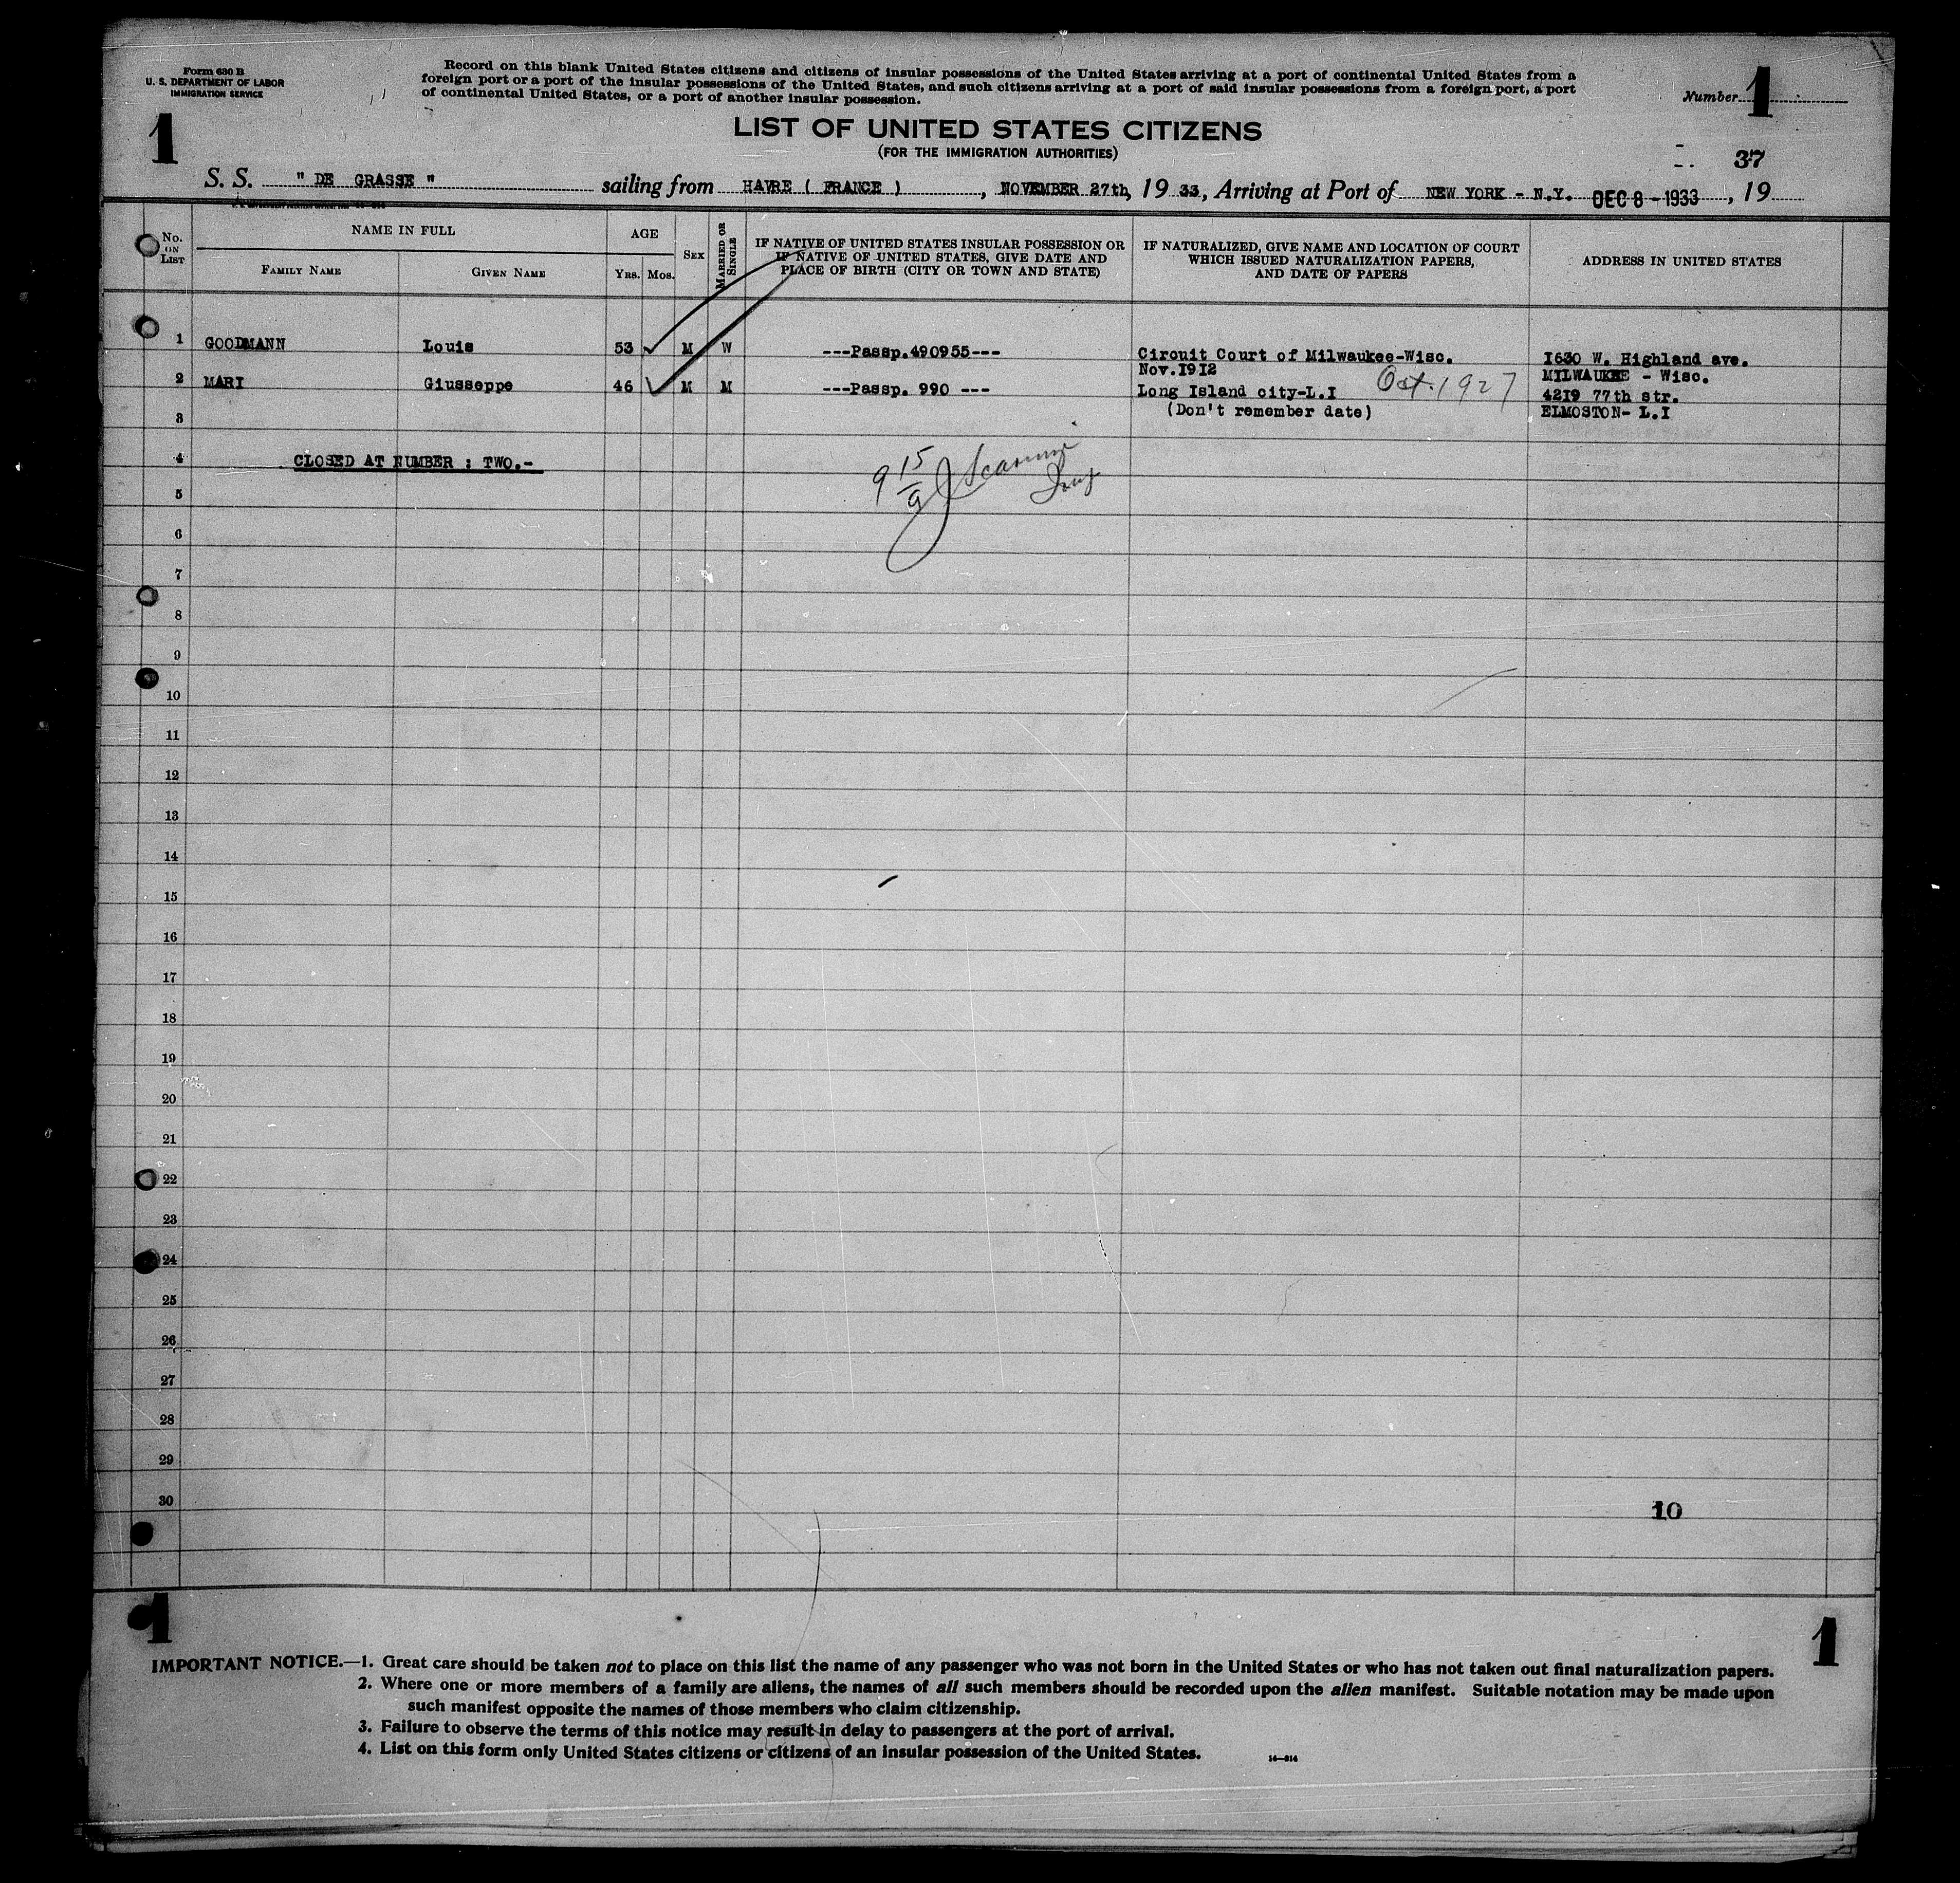 Form 630 B
U. S. DEPARTMENT OF LABOR
IMMIGRATION SERVICE
Record on this blank United States citizens and citizens of insular possessions of the United States arriving at a port of continental United States from a
foreign port or a port of the insular possessions of the United States, and such citizens arriving at a port of said insular possessions from a foreign port, a port
of continental United States, or a port of another insular possession.
Number 1
1
LIST OF UNITED STATES CITIZENS
(FOR THE IMMIGRATION AUTHORITIES)
37
S. S. " DE GRASSE " sailing from HAVRE ( FRANCE ), NOVEMBER 27th, 19 33, Arriving at Port of NEW YORK - N.Y. DEC 8 - 1933, 19
No. ON LIST
NAME IN FULL
FAMILY NAME
GIVEN NAME
AGE
YRS. MOS.
SEX
MARRIED OR SINGLE
IF NATIVE OF UNITED STATES INSULAR POSSESSION OR
IF NATIVE OF UNITED STATES, GIVE DATE AND
PLACE OF BIRTH (CITY OR TOWN AND STATE)
IF NATURALIZED, GIVE NAME AND LOCATION OF COURT
WHICH ISSUED NATURALIZATION PAPERS,
AND DATE OF PAPERS
ADDRESS IN UNITED STATES
1 GOODMANN Louis 53 M W ---Passp.490955--- Circuit Court of Milwaukee-Wisc. 1630 W. Highland ave.
Nov.1912 MILWAUKEE - Wisc.
2 MARI Giusseppe 46 M M ---Passp. 990 --- Long Island city-L.I Oct. 1927 4219 77th str.
(Don't remember date) ELMOSTON- L.I
3
4 CLOSED AT NUMBER : TWO.-
9 15/9
5
6
7
8
9
10
11
12
13
14
15
16
17
18
19
20
21
22
23
24
25
26
27
28
29
30
10
1
1
IMPORTANT NOTICE.—1. Great care should be taken not to place on this list the name of any passenger who was not born in the United States or who has not taken out final naturalization papers.
2. Where one or more members of a family are aliens, the names of all such members should be recorded upon the alien manifest. Suitable notation may be made upon
such manifest opposite the names of those members who claim citizenship.
3. Failure to observe the terms of this notice may result in delay to passengers at the port of arrival.
4. List on this form only United States citizens or citizens of an insular possession of the United States.
14—914